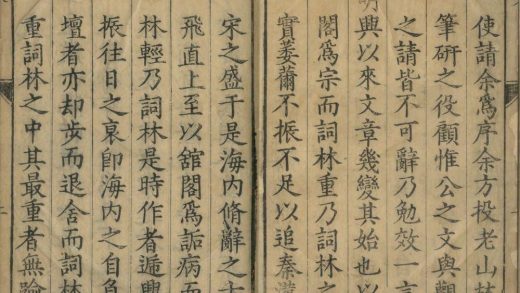 使請余爲序余方投老山林
筆研之役顧惟公之文與觀
之請皆不可辭乃勉效一言
明興以來文章幾變其始也以
閣爲宗而詞林重乃詞林之
實萎薾不振不足以追秦漢
宋之盛于是海内脩辭之士
飛直上至以舘閣爲詬病而
林輕乃詞林是時作者遞興
振往日之衰即海内之自負
壇者亦却步而退舍而詞林
重詞林之中其最重者無論